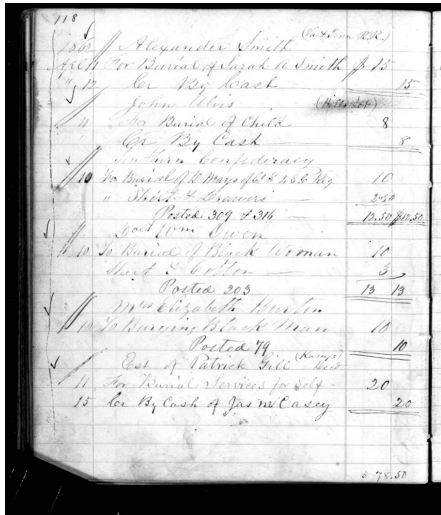 118
(Va & Tenn R.R.)
1861 Alexander Smith
Feb 11 For Burial of Sarah A Smith $ 15
" 12 Cr By Cash 15
John
11 For Burial of Child 8
Cr By Cash 8
Southern Confederacy
10 For Burial of Mays of Co. 4 S.C. Reg 10
" Shirt & Drawers 2.50
Posted 309 & 316 12.50 $12.50
Wm Owen
10 To Burial of Black Woman 10
Shirt & Cotton 3
Posted 203 13 13
Mrs Elizabeth Burton
10 To Burying Black Man 10
Posted 79 10
Est of Patrick Gill
11 For Burial Services for Self 20
15 Cr By Cash of Jas M Casey 20
78.50